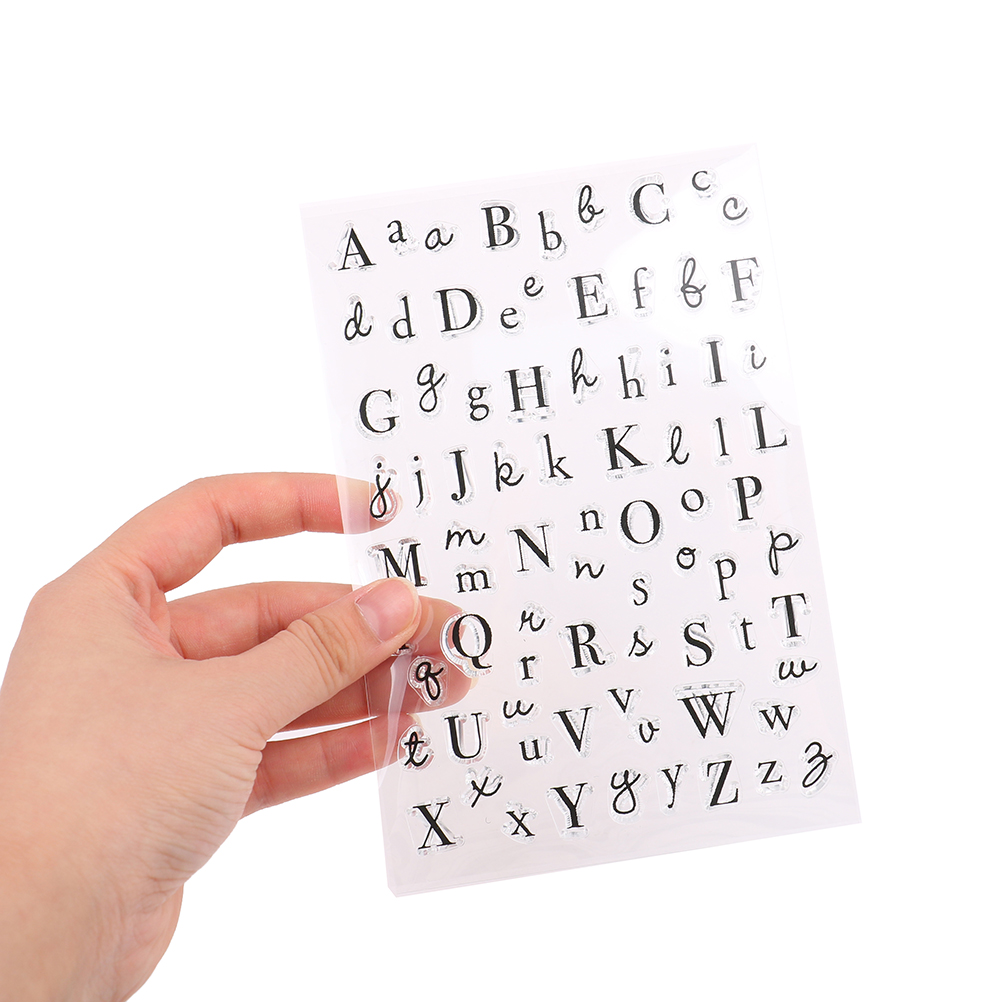 A a a B b b C c c
d d D e e E f f F
G g g H h h i I i
j j J k k K l l l L
M m m N n n O o o P p p
Q q r r R s s S t T
t U u u V v v W w w
X x x Y y y Z z z